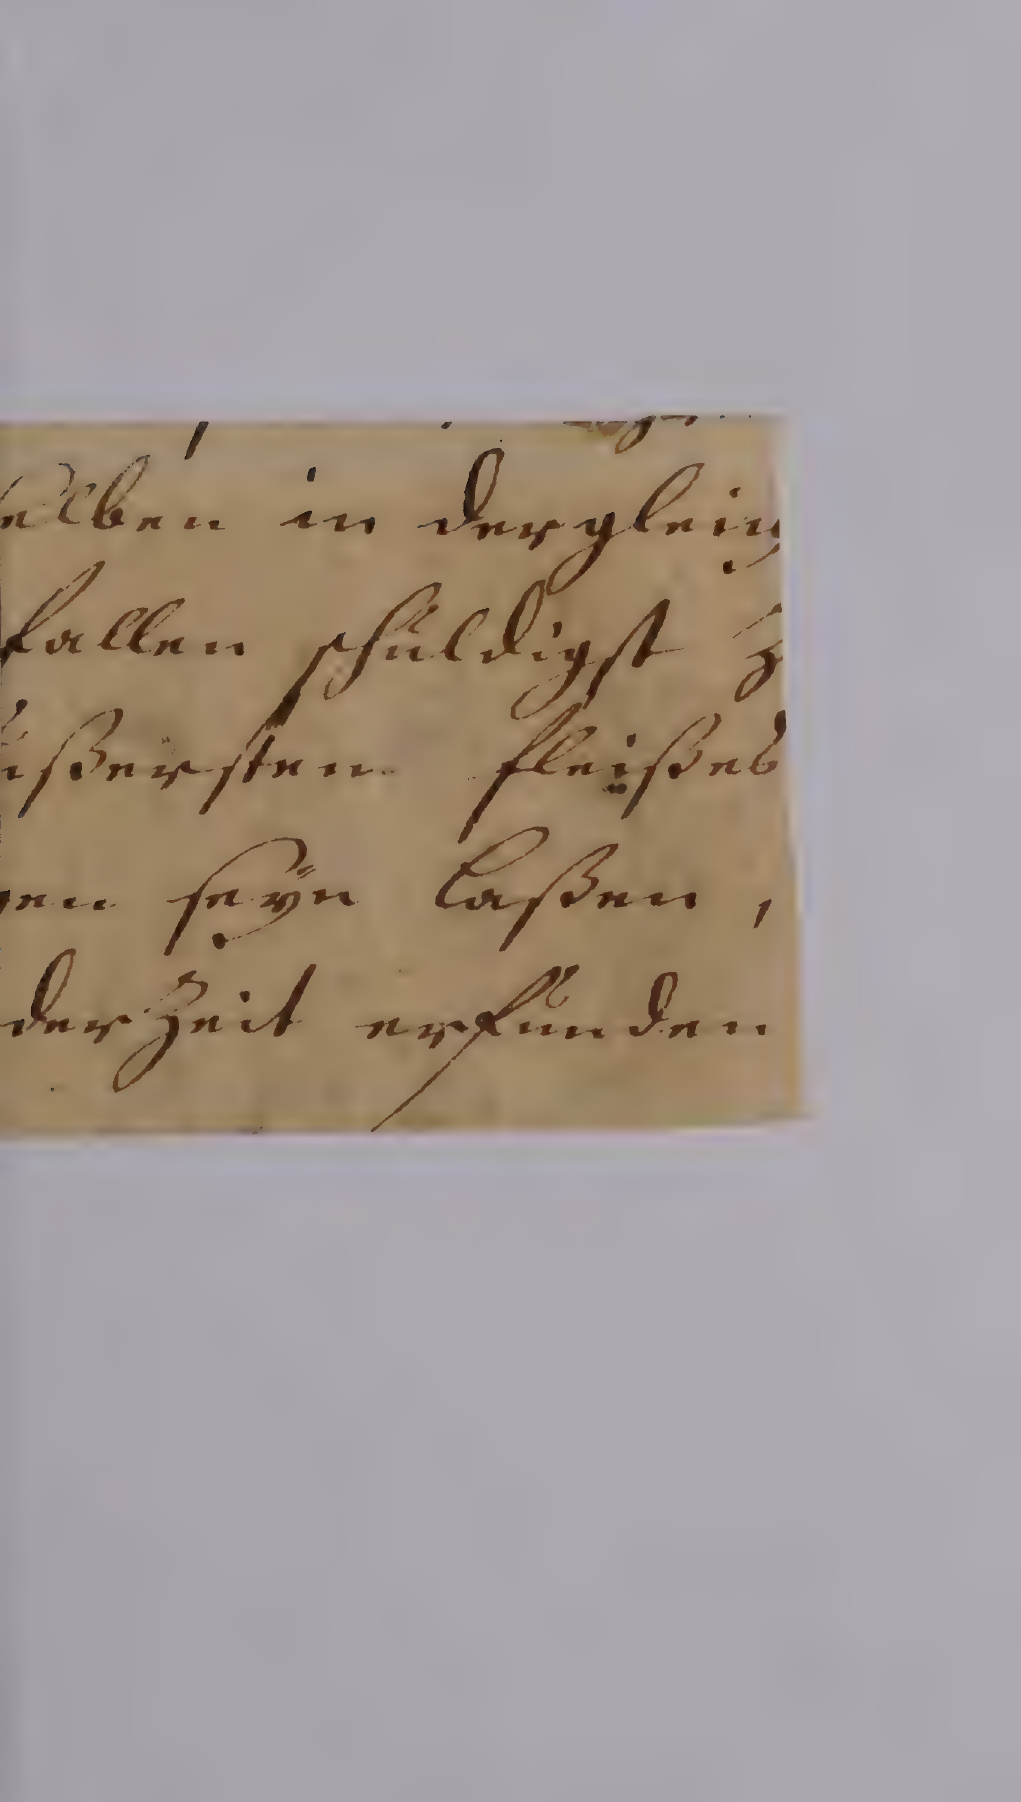 elben in dergleich
fallen schuldigst z
ußersten fleißes
gen seÿn laßen,
der Zeit erfunden